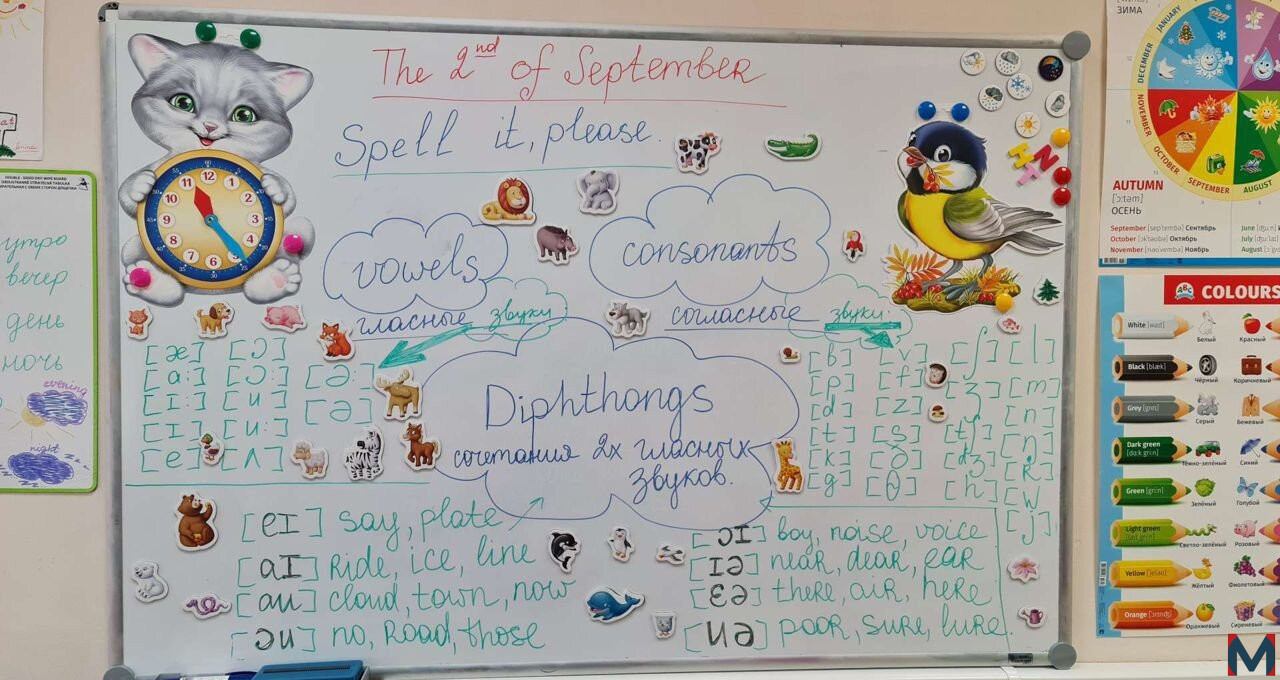 The 2nd of September
Spell it, please.
vowels
consonants
гласные звуки
согласные звуки
[æ] [ɔ]
[a:] [ɔ:] [ə:]
[ɪ:] [u] [ə]
[ɪ] [u:]
[e] [ʌ]
Diphthongs
сочетания 2х гласных
звуков.
[b] [v] [ʃ] [l]
[p] [f] [ʒ] [m]
[d] [z] [n]
[t] [s] [tʃ] [ŋ]
[k] [ð] [dʒ] [R]
[g] [θ] [h] [w]
[j]
[eɪ] say, plate
[aɪ] Ride, ice, line
[au] cloud, town, now
[əu] no, Road, those
[ɔɪ] boy, noise, voice
[ɪə] near, dear, ear
[ɛə] there, air, here
[uə] poor, sure, lure.
12
1
2
3
4
5
6
7
8
9
10
11
утро
вечер
день
ночь
evening
night
ЗИМА
JANUARY
DECEMBER
NOVEMBER
OCTOBER
SEPTEMBER
AUGUST
AUTUMN
[ɔ:təm]
ОСЕНЬ
September [septembə] Сентябрь
October [ɔktəubə] Октябрь
November [nəuvembə] Ноябрь
ABC COLOURS
White [waɪt] Белый Красный
Black [blæk] Чёрный Коричневый
Grey [greɪ] Серый Бежевый
Dark green [dɑ:k gri:n] Тёмно-зелёный Синий
Green [gri:n] Зелёный Голубой
Light green Светло-зелёный Розовый
Yellow [jeləu] Жёлтый Фиолетовый
Orange [ɔrɪndʒ] Оранжевый Сиреневый
M